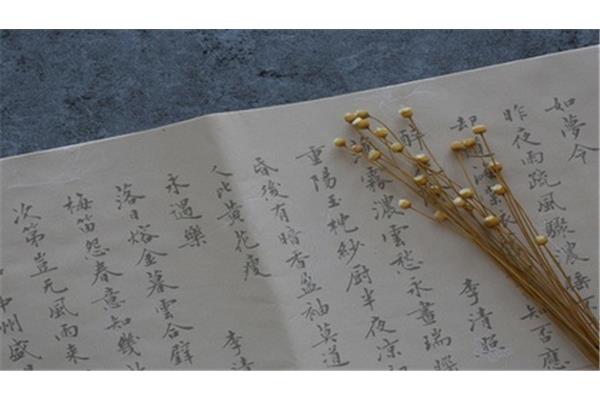 如夢令
昨夜雨疏風驟濃
却道海棠知否應
李清照
醉
霧濃雲愁永晝瑞
重陽玉枕紗厨半夜凉初
昏後有暗香盈袖莫道
人比黃花瘦
李清
永遇樂
落日熔金暮雲合璧
梅笛怨春意知幾
次第豈无風雨來
中州盛